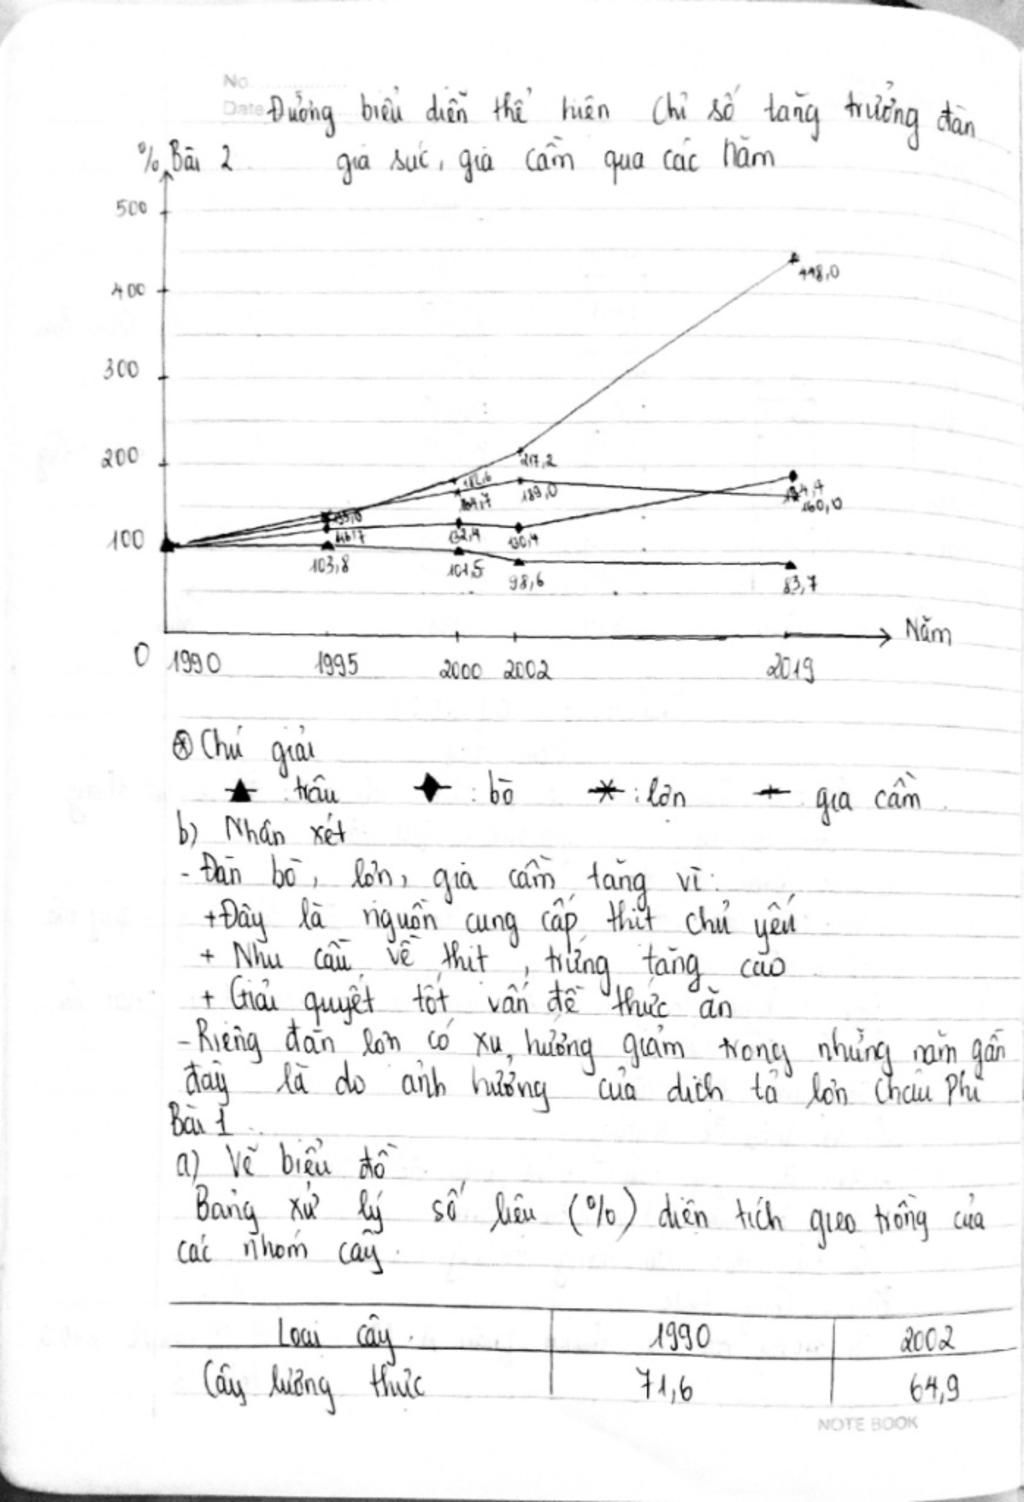 No
Date
Đường biểu diễn thể hiện chỉ số tăng trưởng đàn
% Bài 2 gia súc, gia cầm qua các năm
500
400
300
200
100
0
448,0
217,2
182,6
164,7
189,0
160,0
132,4
130,4
116,7
103,8
101,5
98,6
83,7
Năm
1990 1995 2000 2002 2019
Chú giải
: trâu : bò : lợn gia cầm
b) Nhận xét
- Đàn bò, lợn, gia cầm tăng vì:
+ Đây là nguồn cung cấp thịt chủ yếu
+ Nhu cầu về thịt, trứng tăng cao
+ Giải quyết tốt vấn đề thức ăn
- Riêng đàn lợn có xu hướng giảm trong những năm gần
đây là do ảnh hưởng của dịch tả lợn Châu Phi
Bài 1
a) Vẽ biểu đồ
Bảng xử lý số liệu (%) diện tích gieo trồng của
các nhóm cây.
Loại cây. 1990 2002
Cây lương thực 71,6 64,9
NOTE BOOK